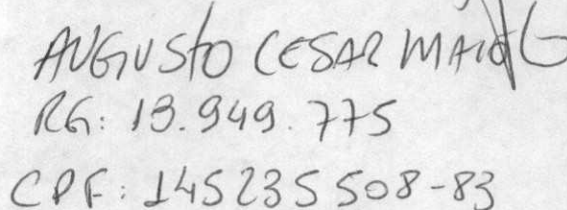 AUGUSTO CESAR
RG: 13.949.775
CPF: 145235508-83